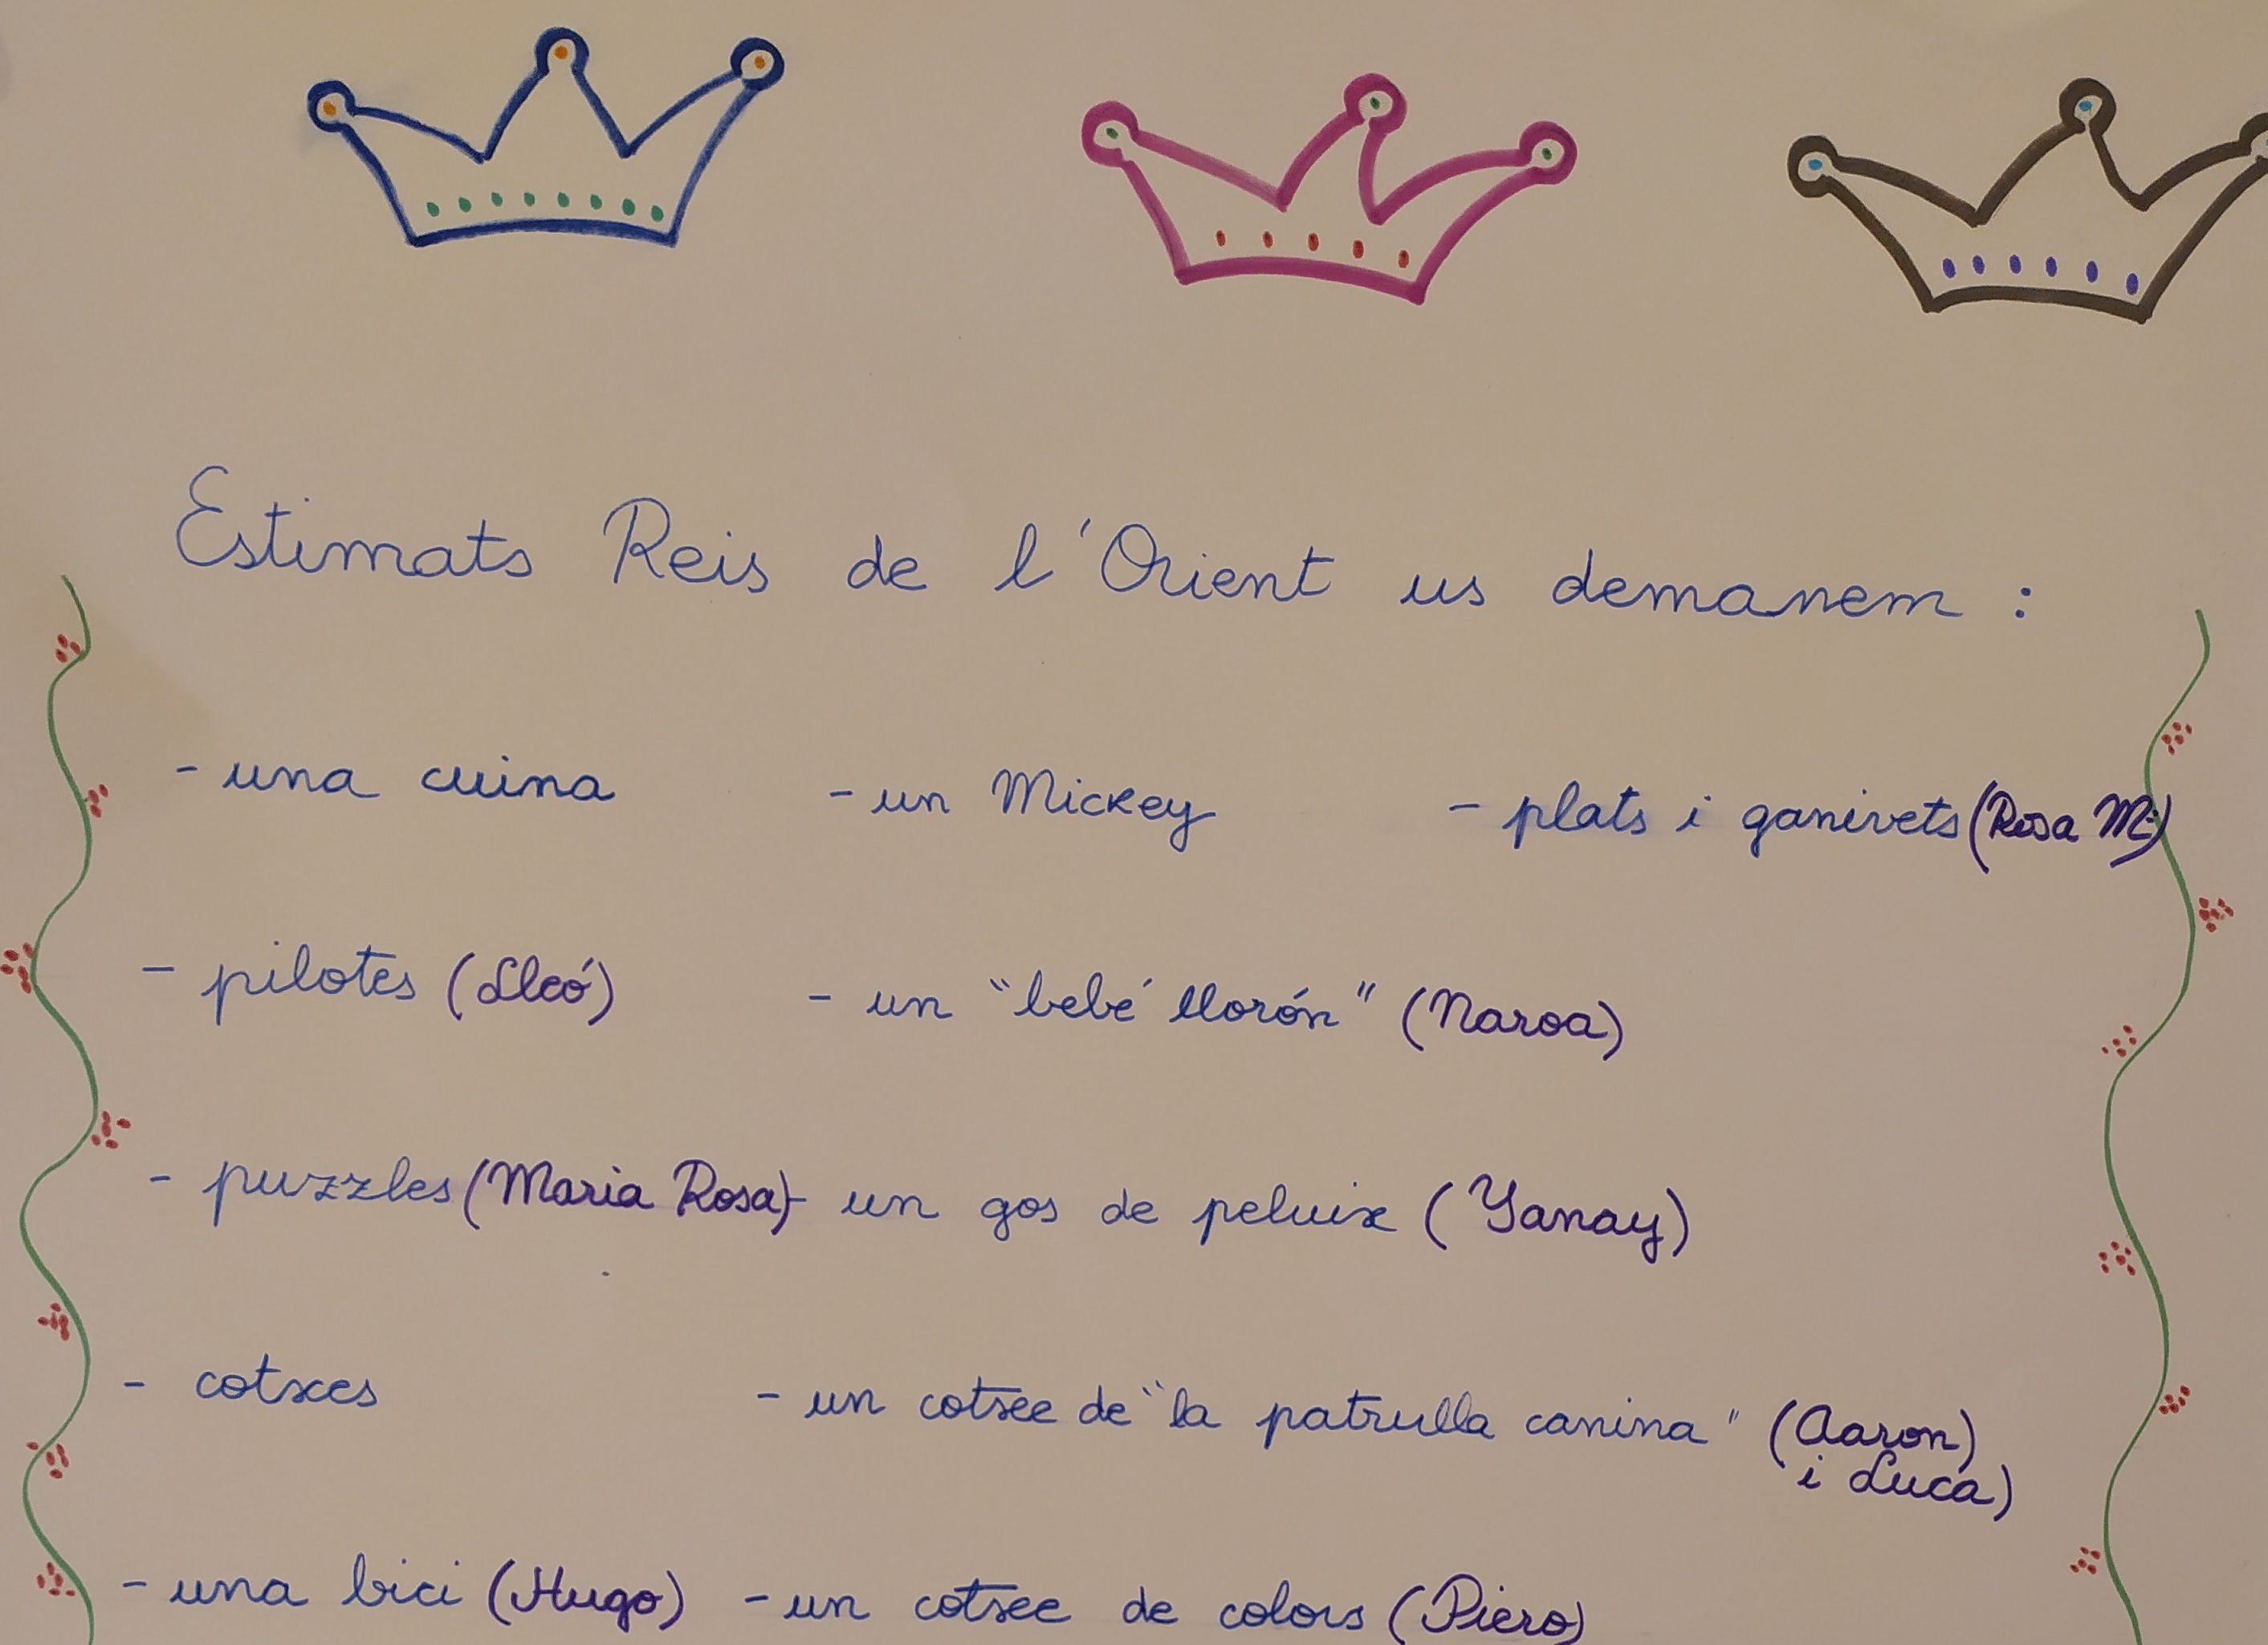 Estimats Reis de l'Orient us demanem :
- una cuina - un Mickey - plats i ganivets (Rosa M.)
- pilotes (Lleó) - un "bebé llorón" (Naroa)
- puzzles (Maria Rosa) - un gos de peluix (Yanay)
- cotxes - un cotxe de "la patrulla canina" (Aaron)
i Luca)
- una bici (Hugo) - un cotxe de colors (Piero)